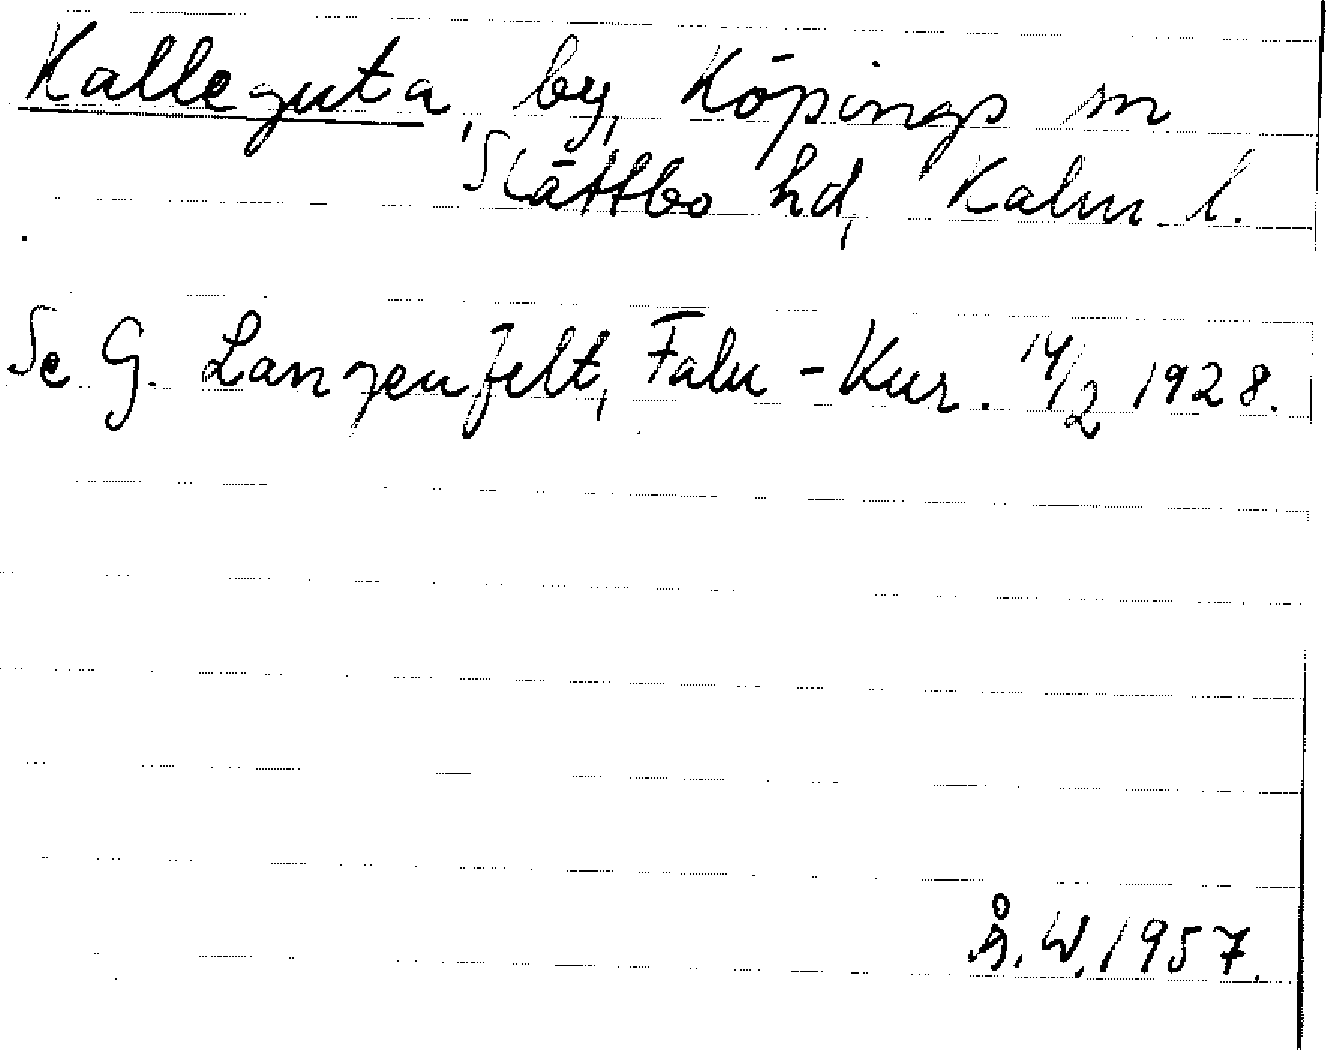 Kalleguta, by, Köpings sn
Slättbo hd, Kalm. l.
Se G. Langenfelt, Falu-Kur. 14/2 1928.
Å.W. 1957.